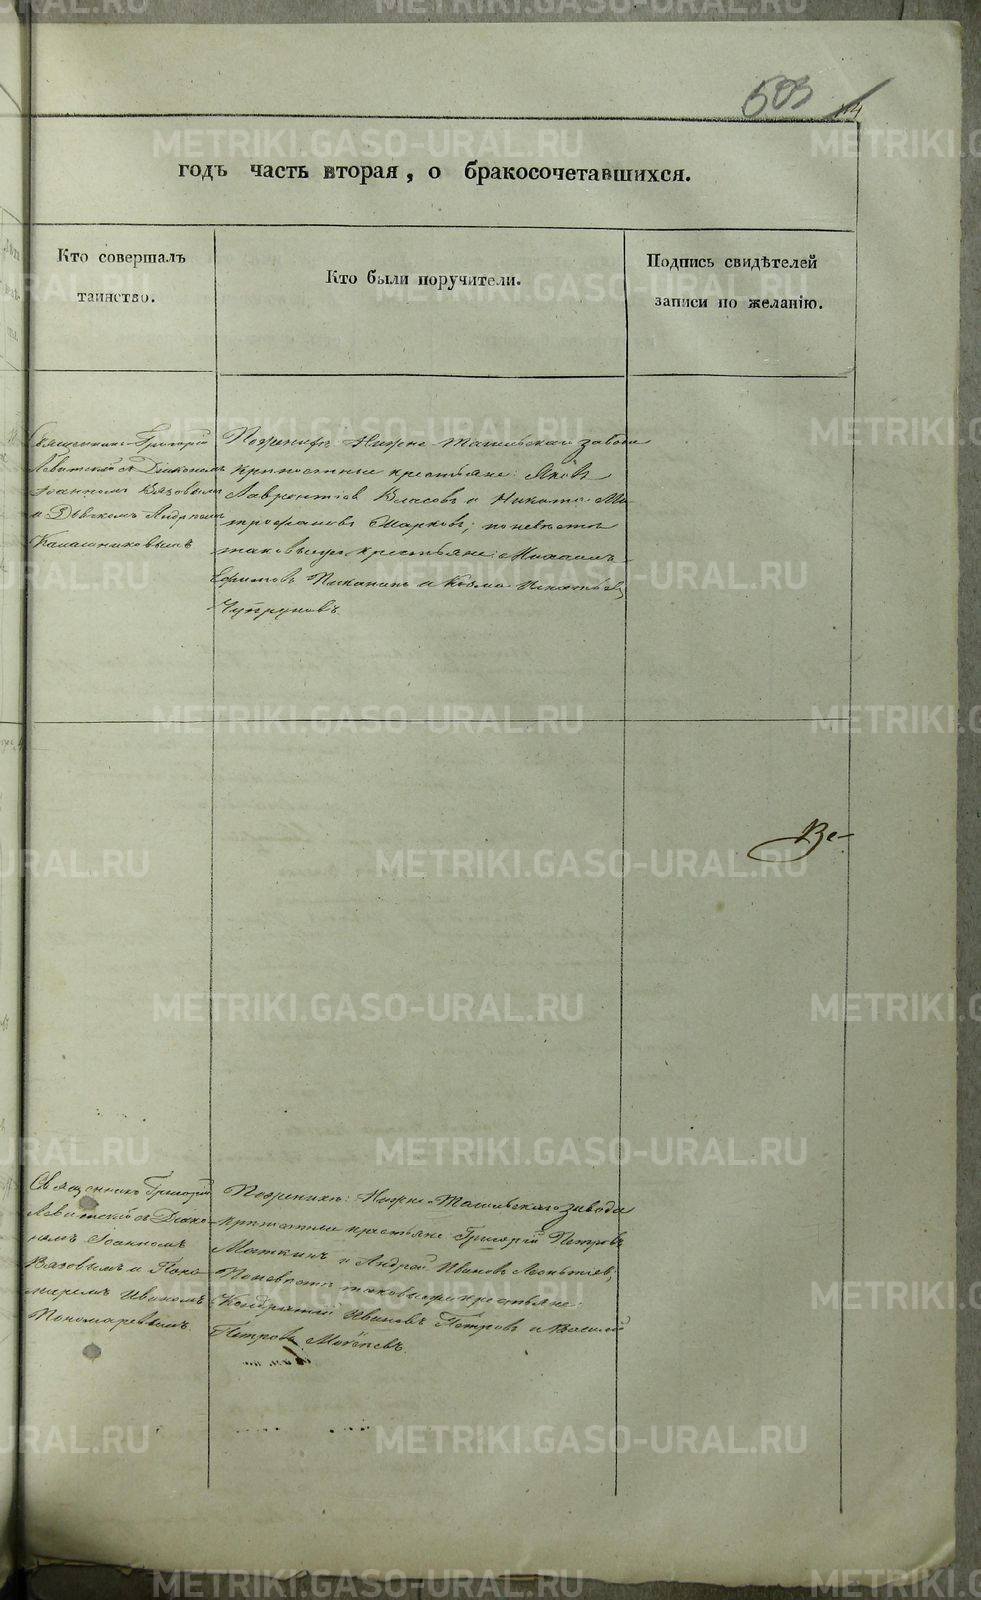 503
114
годъ часть вторая, о бракосочетавшихся.
Кто совершалъ
таинство.
Кто были поручители.
Подпись свидѣтелей
записи по желанію.
Священникъ Григорій
Левитскій съ Діакономъ
Іоанномъ Вязовымъ
и Дьячкомъ Андреемъ
Калашниковымъ
По женихѣ: Нижне Тагильскаго завода
крѣпостные крестьяне: Яковъ
Лаврентіевъ Власовъ и Никита Ми-
трофановъ Марковъ; по невѣстѣ
таковыеже крестьяне: Михаилъ
Ефимовъ Пиканинъ и Козма Игнатьевъ
Чупруновъ.
Ве-
Священникъ Григорій
Левитскій съ Діако-
номъ Іоанномъ
Вязовымъ и Поно-
маремъ Иваномъ
Пономаревымъ.
По женихѣ: Нижне-Тагильскаго завода
крестьяне Григорій Петровъ
и Андрей Ивановъ Леонтьевъ;
По невѣстѣ таковыеже крестьяне:
Кондратій Ивановъ Петровъ и Василій
Петровъ
METRIKI.GASO-URAL.RU